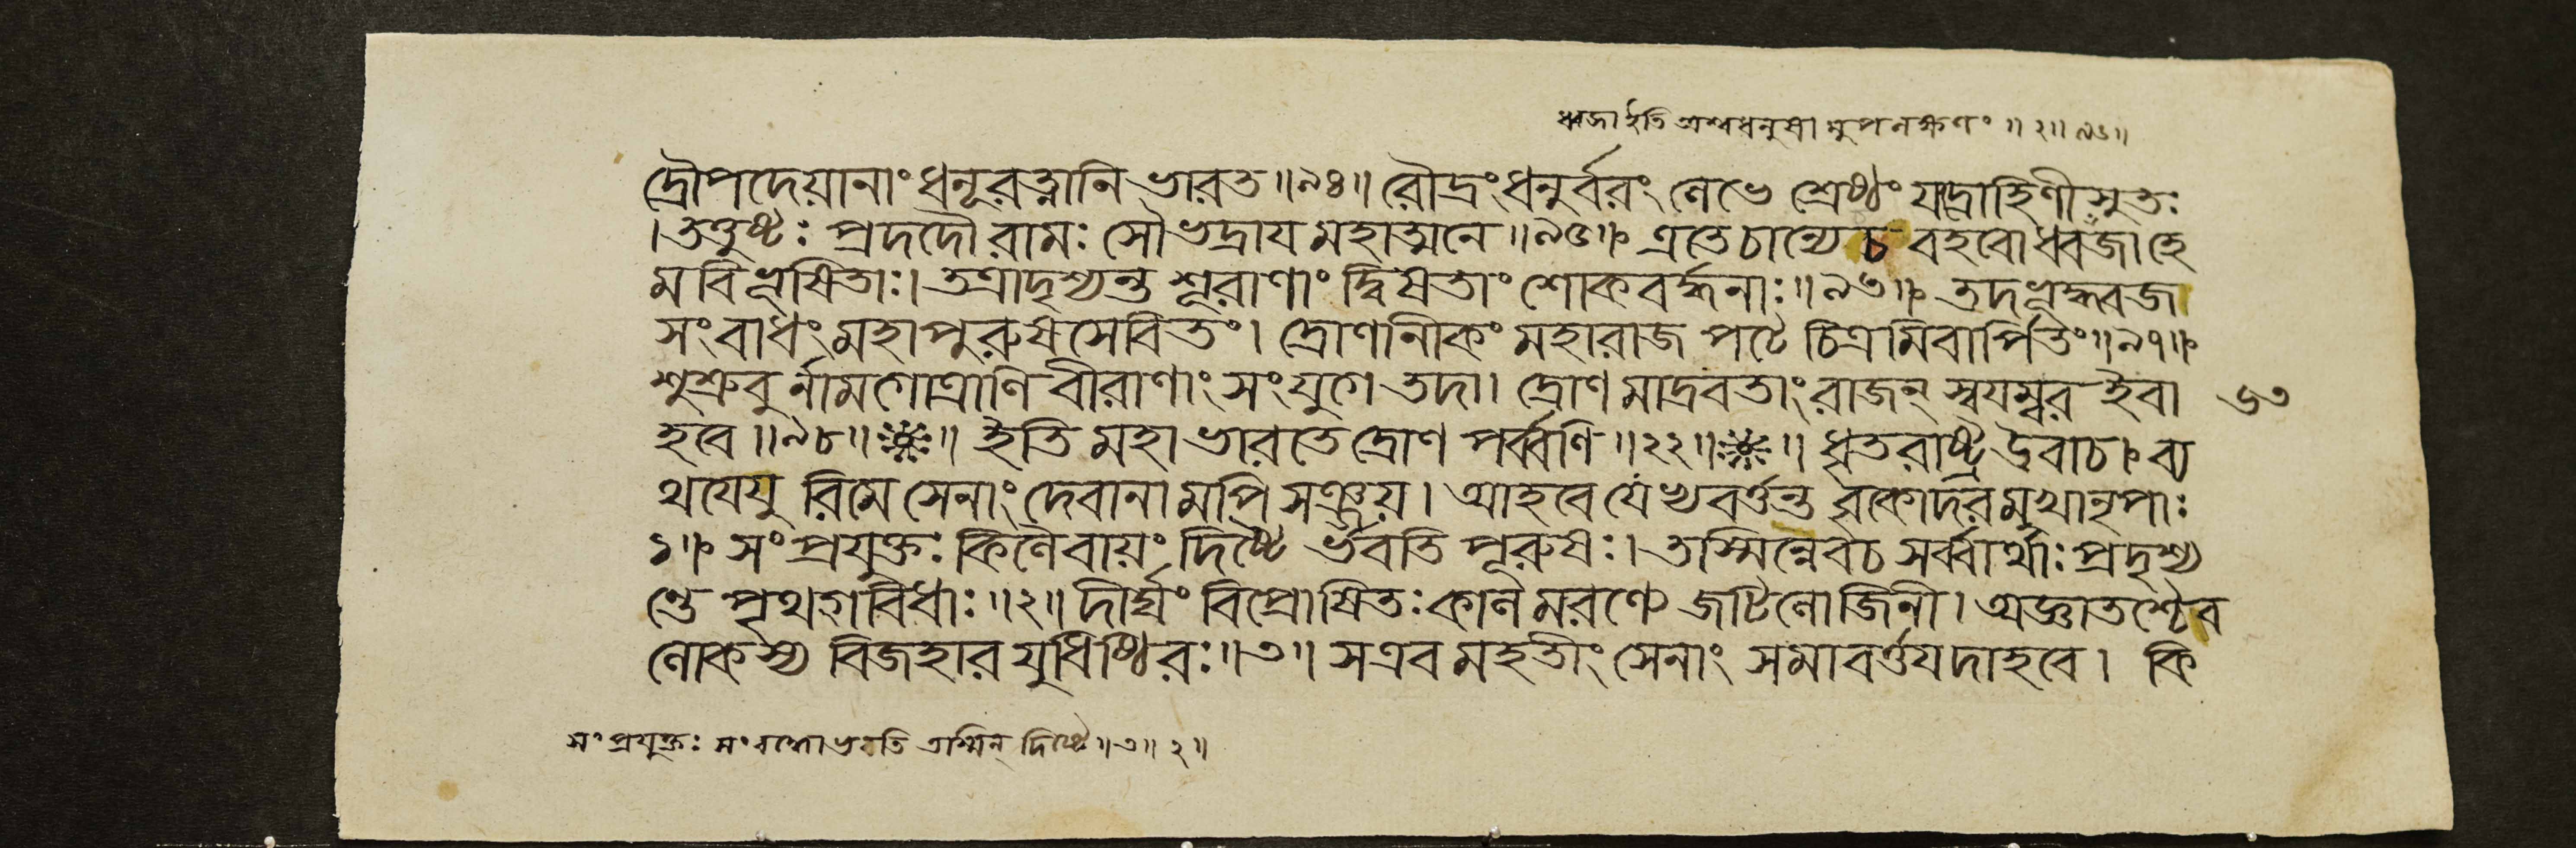 ধ্বজা ইতি অশ্বধনুষা মুপলক্ষণং ॥ ২॥ ৯৬॥
দ্রৌপদেয়ানাং ধনূরত্নানি ভারত ॥৯৪॥ রৌদ্রং ধনুর্বরং লেভে শ্রেষ্ঠং যদ্রোহিণীসুতঃ
। তত্তুষ্টঃ প্রদদৌ রামঃ সৌভদ্রায মহাত্মনে ॥৯৫॥ এতে চান্যে চ বহবো ধ্বজা হে
ম বিভূষিতাঃ। তত্রাদৃশ্যন্ত শূরাণাং দ্বিষতাং শোকবর্দ্ধনাঃ॥৯৬॥ তদভূদ্ধ্বজ
সংবাধং মহাপুরুষসেবিতং। দ্রোণানীকং মহারাজ পটে চিত্রমিবার্পিতং॥৯৭॥
শুশ্রুবু র্নামগোত্রাণি বীরাণাং সংযুগে তদা। দ্রোণ মাদ্রবতাং রাজন্ স্বযম্বর ইবা ৬৩
হবে ॥৯৮॥ ॥ ইতি মহাভারতে দ্রোণ পর্ব্বণি ॥২২॥ ॥ ধৃতরাষ্ট্র উবাচ। ব্য
থযেযু রিমে সেনাং দেবানা মপি সঞ্জয়। আহবে যে ন্যবর্ত্তন্ত বৃকোদরমুখা নৃপাঃ
১॥ সং প্রযুক্তঃ কিলৈবায়ং দিষ্টৈ র্ভবতি পূরুষঃ। তস্মিন্নেবচ সর্ব্বার্থাঃ প্রদৃশ্য
ন্তে পৃথগ্বিধাঃ ॥২॥ দীর্ঘং বিপ্রোষিতঃ কাল মরণ্যে জটিলোজিনী। অজ্ঞাতশ্চৈব
লোকস্য বিজহার যুধিষ্ঠিরঃ॥৩॥ সএব মহতীং সেনাং সমাবর্ত্তযদাহবে। কি
সং প্রযুক্তঃ সংবদ্ধো ভবতি তস্মিন্ দিষ্টে ॥৩॥ ২॥